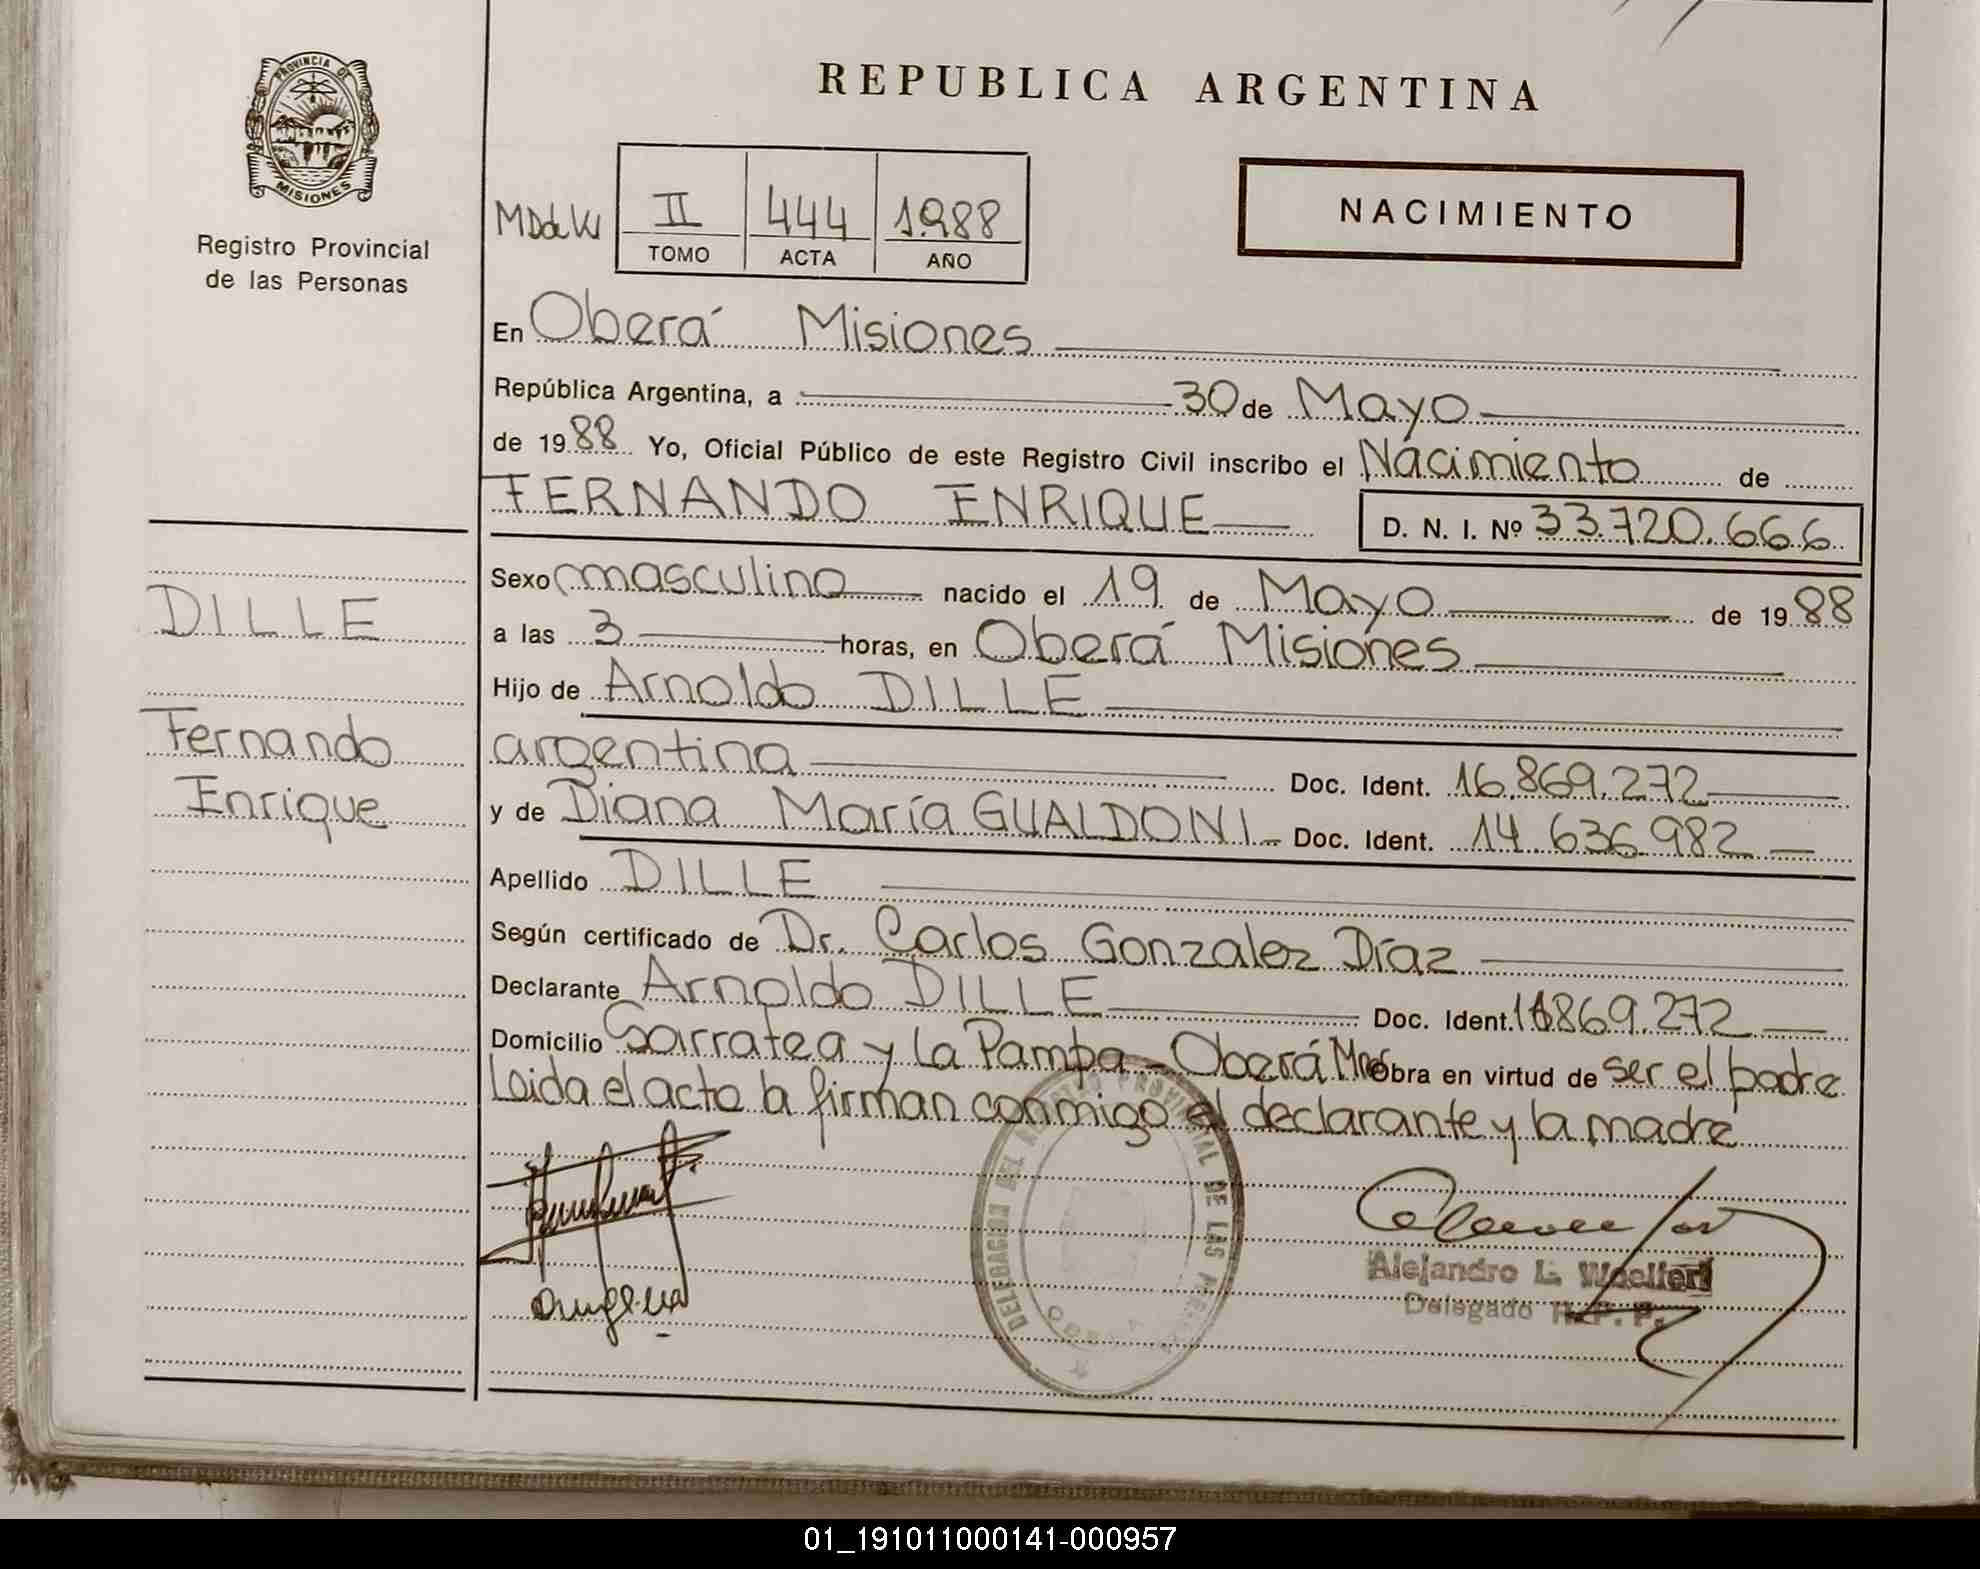 REPUBLICA ARGENTINA
PROVINCIA DE
MISIONES
Registro Provincial
de las Personas
II 444 1.988
TOMO ACTA AÑO
NACIMIENTO
En Oberá Misiones
República Argentina, a 30 de Mayo
de 1988 Yo, Oficial Público de este Registro Civil inscribo el Nacimiento de
FERNANDO ENRIQUE D. N. I. Nº 33.720.666
Sexo masculino nacido el 19 de Mayo de 1988
a las 3 horas, en Oberá Misiones
Hijo de Arnoldo DILLE
argentina Doc. Ident. 16.869.272
y de Diana María GUALDONI Doc. Ident. 14.636.982
Apellido DILLE
Según certificado de Dr. Carlos Gonzalez Díaz
Declarante Arnoldo DILLE Doc. Ident. 16869.272
Domicilio Sarratea y La Pampa - Oberá Mnes Obra en virtud de ser el padre
Leida el acta la firman conmigo el declarante y la madre
DILLE
Fernando
Enrique
DELEGACION DEL REGISTRO PROVINCIAL DE LAS
Alejandro L.
Delegado R. P. P.
01_191011000141-000957